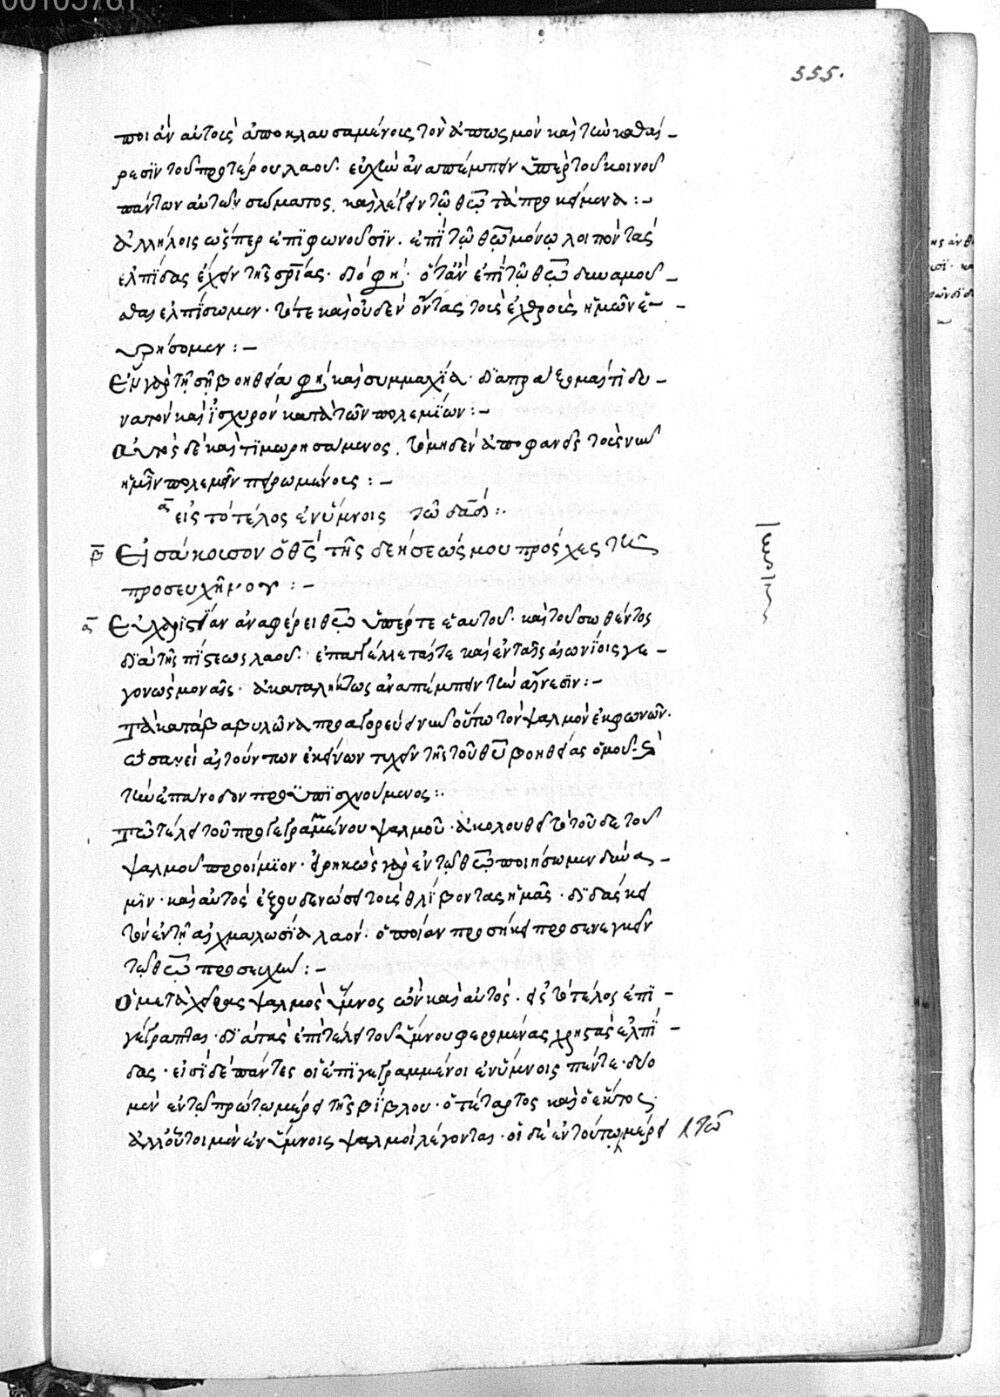 555.
ποιὰν αὐτοῖς ἀποκλαυσαμένοις τὸν μὸν καὶ τὴν καθαί-
ρεσιν τοῦ προτέρου λαοῦ. εὐχὴν ἀναπέμπειν ὑπὲρ τοῦ κοινοῦ
πάντων αὐτῶν σώματος. καὶ λέγειν τῷ θῶ τὰ προκείμενα :~
ἀλλήλοις ὥσπερ ἐπιφωνοῦσιν. ἐπὶ τῷ θῶ μόνῳ λοιπὸν τὰς
ἐλπίδας ἔχειν τῆς σρίας. διό φη. ὅταν ἐπὶ τῷ θῶ δυναμοῦ-
σθαι ἐλπίσωμεν. τότε καὶ οὐδὲν ὄντας τοὺς ἐχθροὺς ἡμῶν εὑ-
ρήσομεν :~
Ἐν γὰρ τῇ σῇ βοηθείᾳ φη καὶ συμμαχίᾳ. διαπραξόμαί τι δυ-
νατὸν καὶ ἰσχυρὸν κατὰ τῶν πολεμίων :~
Αὐτὸς δὲ καὶ τιμωρησάμενος. τὸ μηδὲν ἀποφανεῖς τοὺς νῦν
ἡμῖν πολεμεῖν πειρωμένους :~
εἰς τὸ τέλος ἐν ὕμνοις τῶ δαδ :.
Εἰσάκουσον ὁ θς τῆς δεήσεώς μου πρόσχες τῇ
προσευχῇ μου :~
Εὐχαριστίαν ἀναφέρει θῶ ὑπέρ τε ἑαυτοῦ. καὶ τοῦ σωθέντος
διὰ τῆς πίστεως λαοῦ. ἐπαγγέλλεταί τε καὶ ἐν ταῖς αἰωνίοις γε-
γονὼς μοναῖς. ἀκαταλήκτως ἀναπέμπειν τὴν αἴνεσιν :~
Τὰ κατὰ βαβυλῶνα προαγορεύει νῦν οὕτω τὸν ψαλμὸν ἐκφωνῶν.
ὡσανεὶ αἰτούντων ἐκείνων τυχεῖν τῆς τοῦ θυ βοηθείας ὁμοῦ καὶ
τὴν ἐπάνοδον προϋπισχνούμενος :.
Τῷ τέλει τοῦ προγεγραμμένου ψαλμοῦ. ἀκολουθεῖ τὸ τοῦδε τοῦ
ψαλμοῦ προοίμιον. εἰρηκὼς γὰρ ἐν τῷ θῶ ποιήσωμεν δύνα-
μιν. καὶ αὐτὸς ἐξουδενώσει τοὺς θλίβοντας ἡμᾶς. διδάσκει
τὸν ἐν τῇ αἰχμαλωσίᾳ λαόν. ὁποίαν προσήκει προσενεγκεῖν
τῷ θῶ προσευχήν :~
Ὁ μετὰ χεῖρας ψαλμὸς ὕμνος ὢν καὶ αὐτός. εἰς τὸ τέλος ἐπι-
γέγραπται. διὰ τὰς ἐπὶ τέλει τοῦ ὕμνου φερομένας χρηστὰς ἐλπί-
δας. εἰσὶ δὲ πάντες οἱ ἐπιγεγραμμένοι ἐν ὕμνοις πέντε. δύο
μὲν ἐν τῷ πρώτῳ μέρει τῆς βίβλου. ὁ τέταρτος καὶ ὁ ἕκτος.
ἀλλ' οὗτοι μὲν ἐν ὕμνοις ψαλμοὶ λέγονται. οἱ δὲ ἐν τούτῳ μέρει